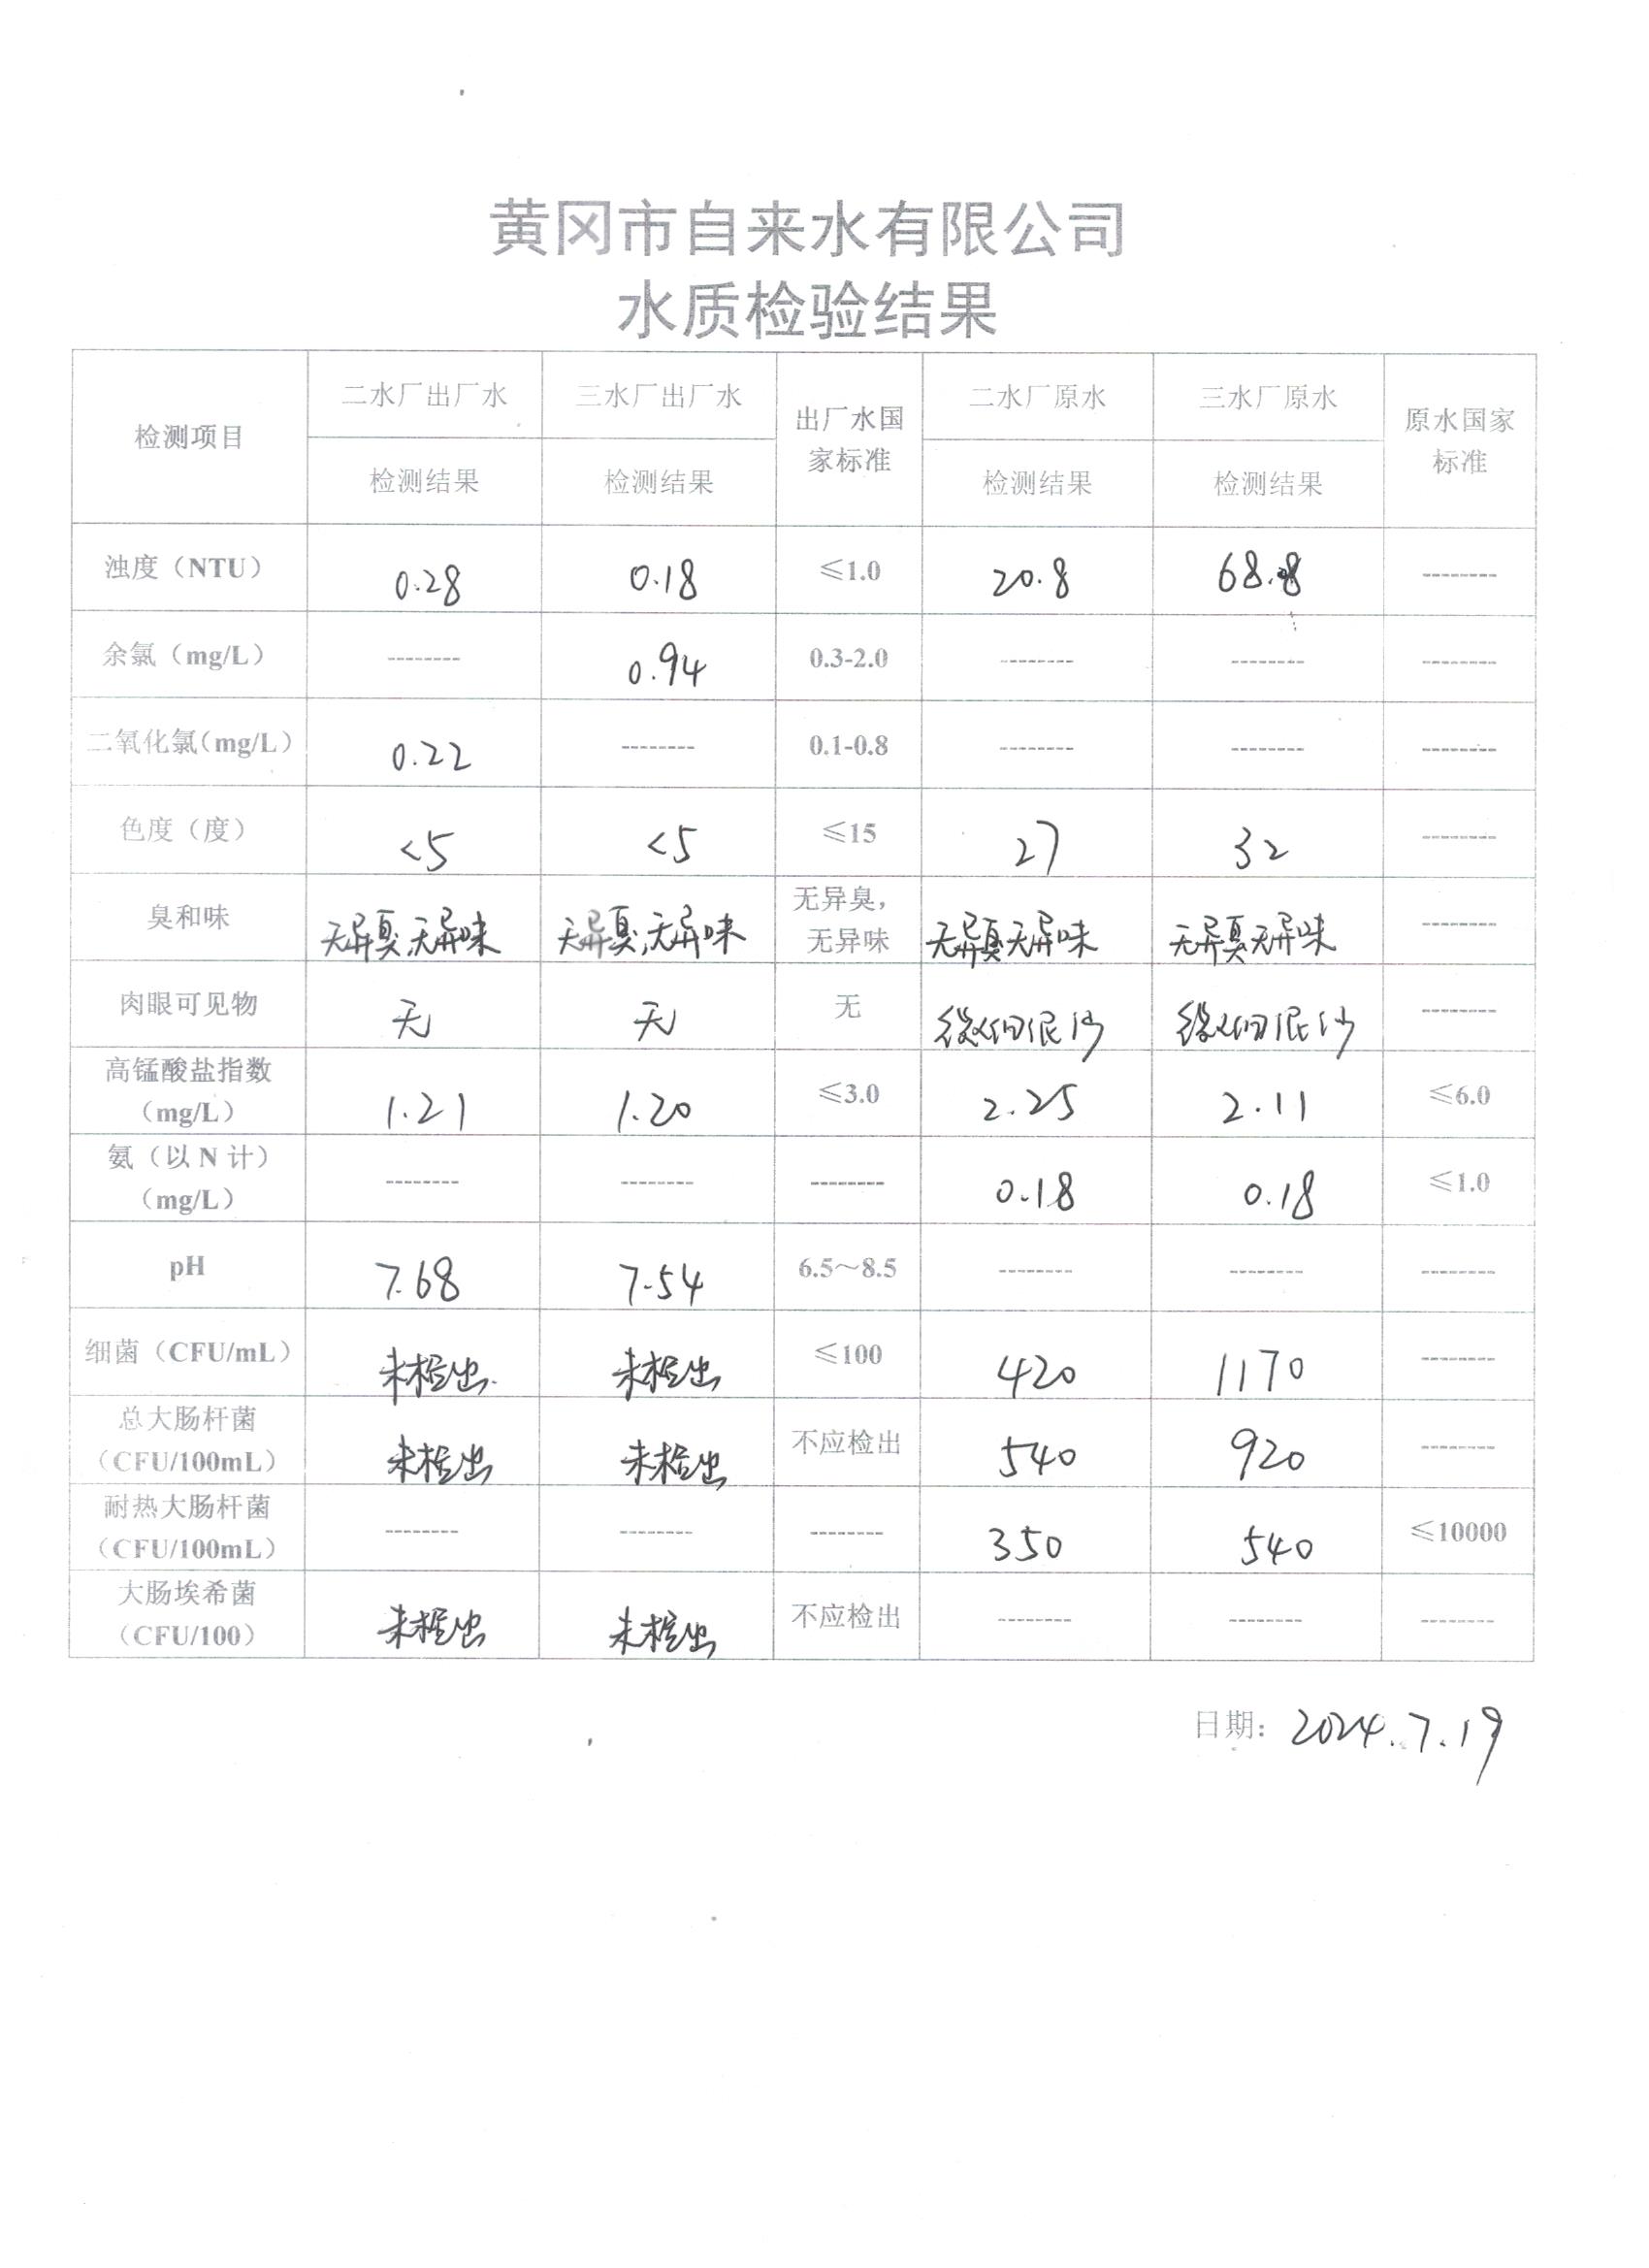 黄冈市自来水有限公司
水质检验结果
检测项目 二水厂出厂水 三水厂出厂水 出厂水国家标准 二水厂原水 三水厂原水 原水国家标准
检测结果 检测结果 检测结果 检测结果
浊度（NTU） 0.28 0.18 ≤1.0 20.8 68.8 --------
余氯（mg/L） -------- 0.94 0.3-2.0 -------- -------- --------
二氧化氯（mg/L） 0.22 -------- 0.1-0.8 -------- -------- --------
色度（度） <5 <5 ≤15 27 32 --------
臭和味 无异臭,无异味 无异臭,无异味 无异臭，无异味 无异臭无异味 无异臭无异味 --------
肉眼可见物 无 无 无 细泥沙 细泥沙 --------
高锰酸盐指数（mg/L） 1.21 1.20 ≤3.0 2.25 2.11 ≤6.0
氨（以 N 计）（mg/L） -------- -------- -------- 0.18 0.18 ≤1.0
pH 7.68 7.54 6.5～8.5 -------- -------- --------
细菌（CFU/mL） 未检出 未检出 ≤100 420 1170 --------
总大肠杆菌（CFU/100mL） 未检出 未检出 不应检出 540 920 --------
耐热大肠杆菌（CFU/100mL） -------- -------- -------- 350 540 ≤10000
大肠埃希菌（CFU/100） 未检出 未检出 不应检出 -------- -------- --------
日期: 2024.7.19